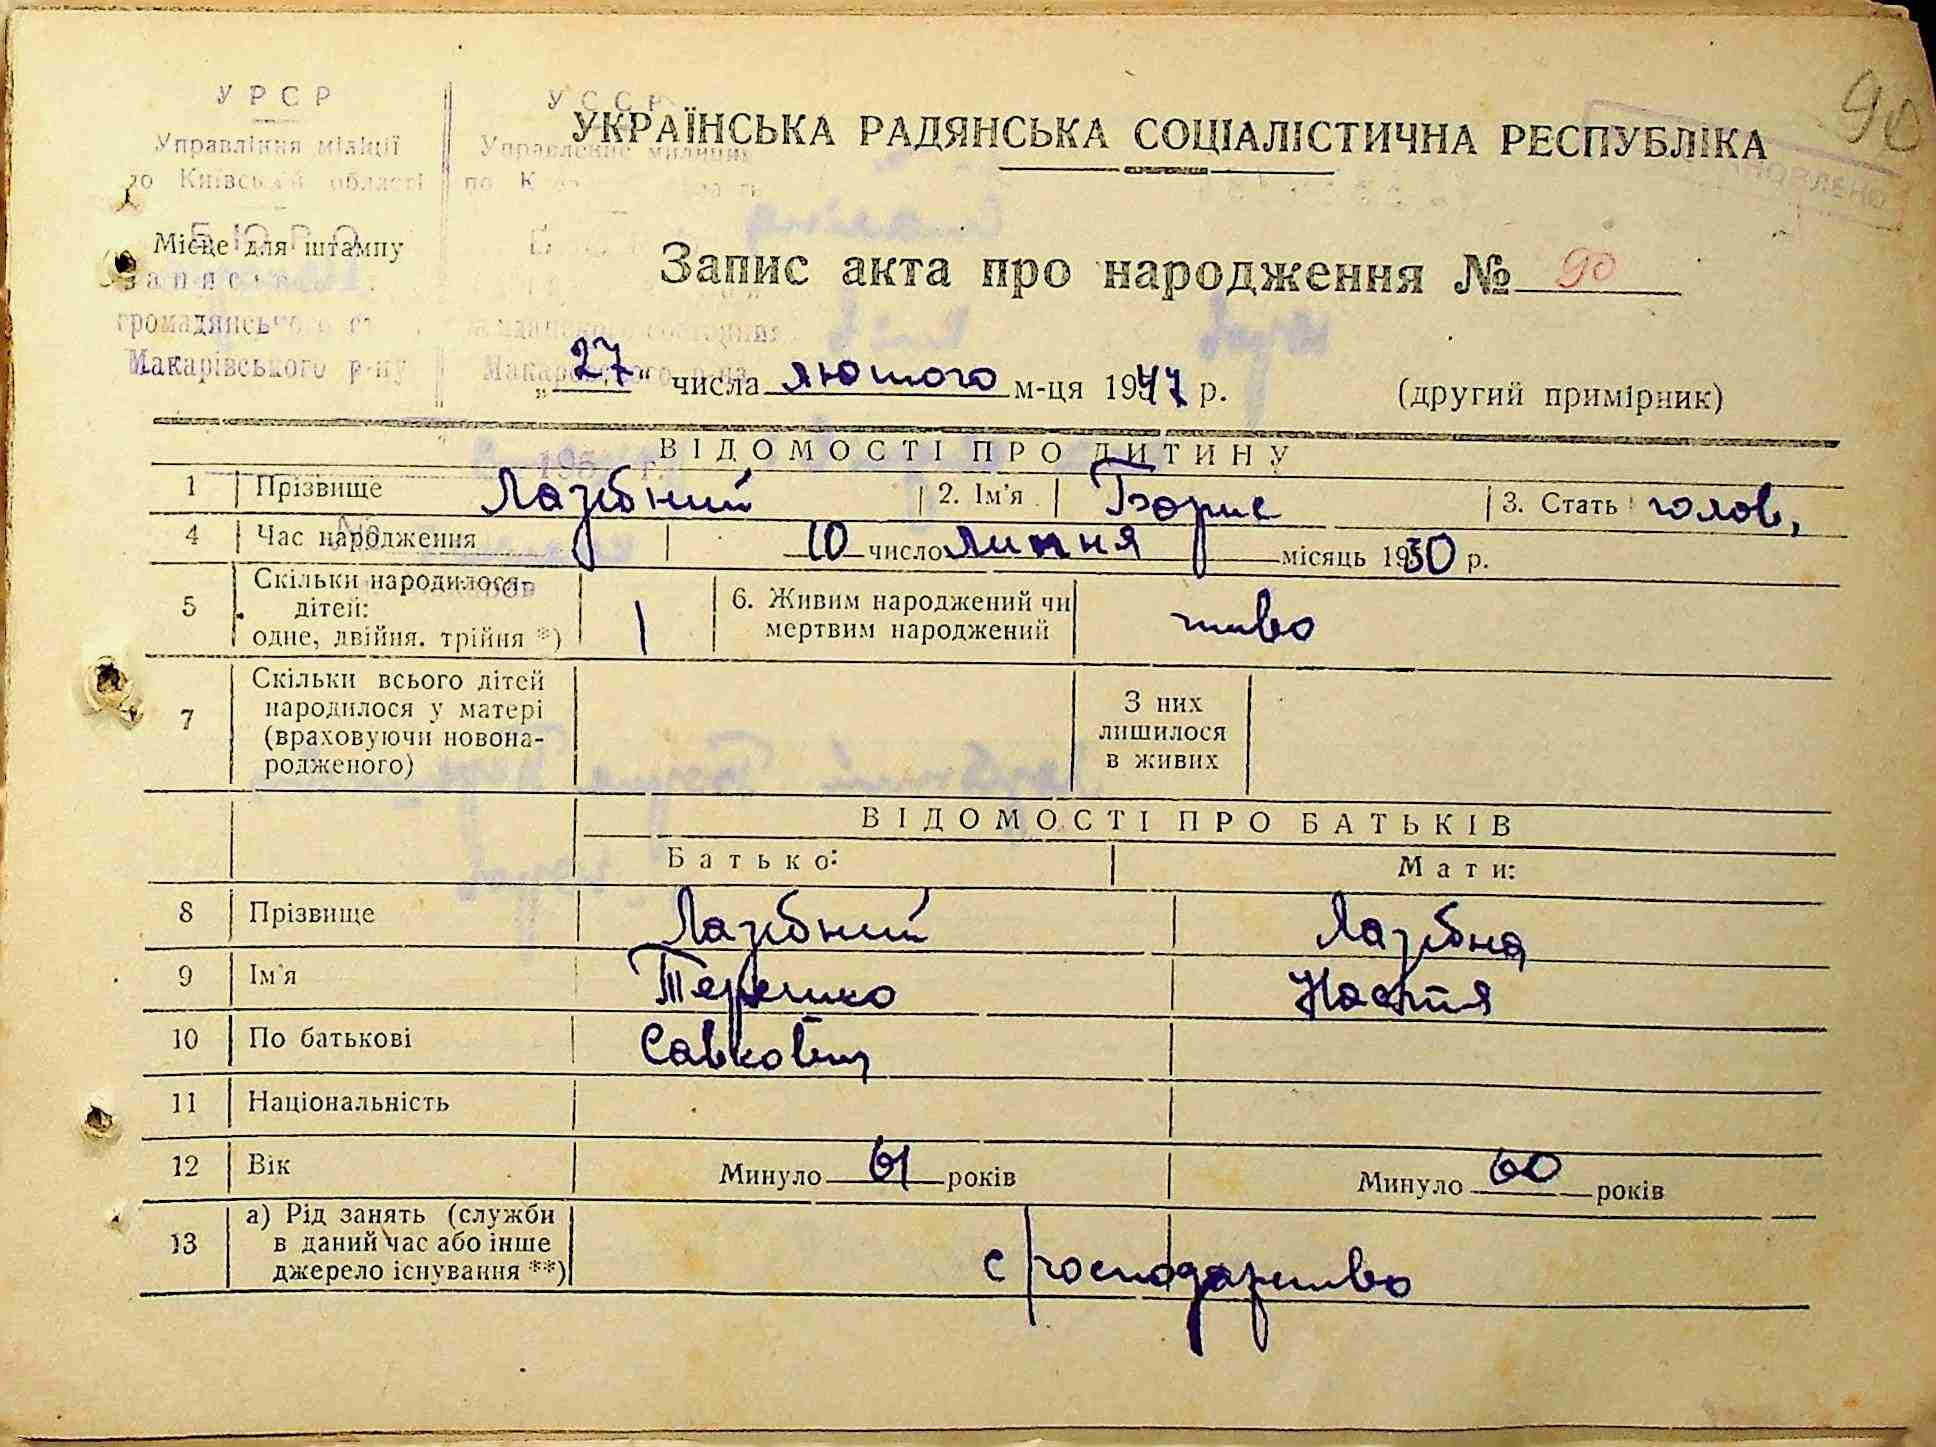 90
УРСР
УССР
УКРАЇНСЬКА РАДЯНСЬКА СОЦІАЛІСТИЧНА РЕСПУБЛІКА
Управління міліції
Управление милиции
по Київській області
по
НОВЛЕНО
БЮРО
Місце для штампу
Запис акта про народження № 90
громадянського
Макарівського р-ну
Макаровского р-на
„27“ числа лютого м-ця 1947 р. (другий примірник)
ВІДОМОСТІ ПРО ДИТИНУ
195 г.
1 Прізвище Лазебний 2. Ім'я Борис 3. Стать чолов,
4 Час народження 10 число липня місяць 1930 р.
5 Скільки народилося дітей: одне, двійня. трійня *) 1 6. Живим народжений чи мертвим народжений живо
7 Скільки всього дітей народилося у матері (враховуючи новонародженого) З них лишилося в живих
ВІДОМОСТІ ПРО БАТЬКІВ
Батько: Мати:
8 Прізвище Лазебний Лазебна
9 Ім'я Терешко Настя
10 По батькові Савкович
11 Національність
12 Вік Минуло 61 років Минуло 60 років
13 а) Рід занять (служби в даний час або інше джерело існування **) с/господарство